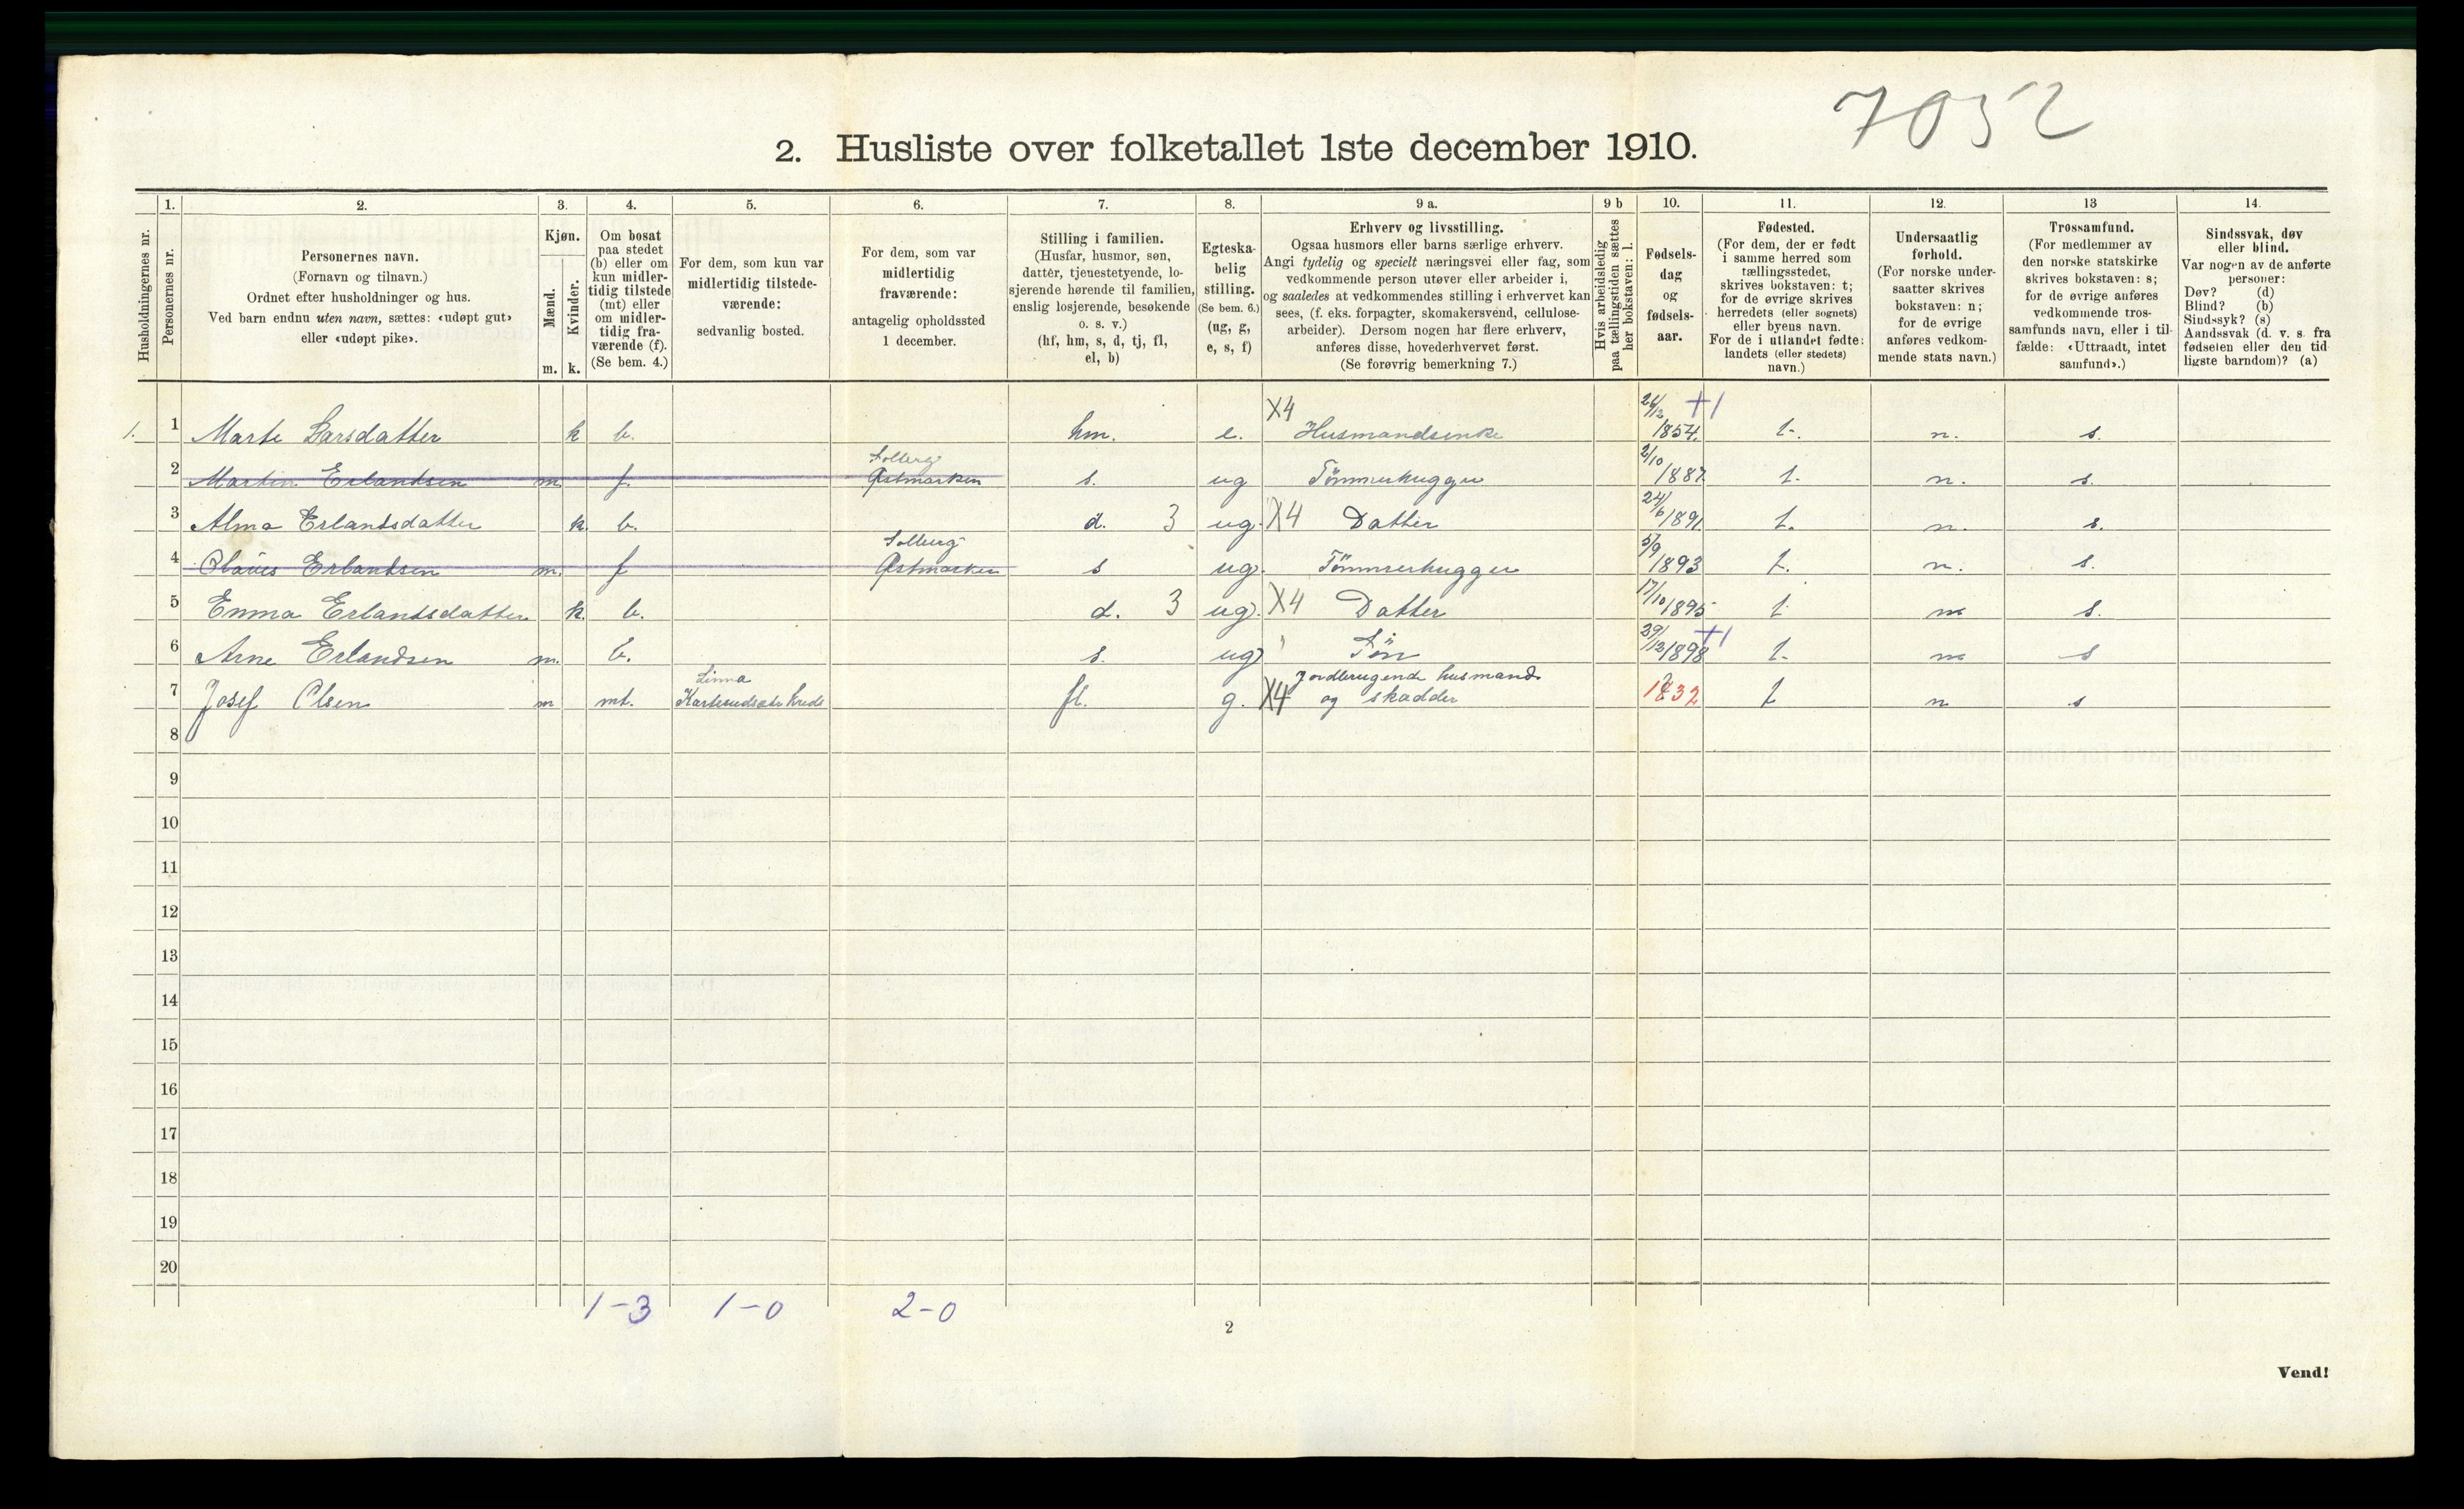 7052
2. Husliste over folketallet 1ste december 1910.
Husholdningernes nr.
1.
Personernes nr.
2.
Personernes navn.
(Fornavn og tilnavn.)
Ordnet efter husholdninger og hus.
Ved barn endnu uten navn, sættes: «udøpt gut»
eller «udøpt pike».
3.
Kjøn.
Mænd.
Kvinder.
m. k.
4.
Om bosat
paa stedet
(b) eller om
kun midler-
tidig tilstede
(mt) eller
om midler-
tidig fra-
værende (f).
(Se bem. 4.)
5.
For dem, som kun var
midlertidig tilstede-
værende:
sedvanlig bosted.
6.
For dem, som var
midlertidig
fraværende:
antagelig opholdssted
1 december.
7.
Stilling i familien.
(Husfar, husmor, søn,
datter, tjenestetyende, lo-
sjerende hørende til familien,
enslig losjerende, besøkende
o. s. v.)
(hf, hm, s, d, tj, fl,
el, b)
8.
Egteska-
belig
stilling.
(Se bem. 6.)
(ug, g,
e, s, f)
9 a.
Erhverv og livsstilling.
Ogsaa husmors eller barns særlige erhverv.
Angi tydelig og specielt næringsvei eller fag, som
vedkommende person utøver eller arbeider i,
og saaledes at vedkommendes stilling i erhvervet kan
sees, (f. eks. forpagter, skomakersvend, cellulose-
arbeider). Dersom nogen har flere erhverv,
anføres disse, hovederhvervet først.
(Se forøvrig bemerkning 7.)
9 b
Hvis arbeidsledig
paa tællingstiden sættes
her bokstaven: l.
10.
Fødsels-
dag
og
fødsels-
aar.
11.
Fødested.
(For dem, der er født
i samme herred som
tællingsstedet,
skrives bokstaven: t;
for de øvrige skrives
herredets (eller sognets)
eller byens navn.
For de i utlandet fødte:
landets (eller stedets)
navn.)
12.
Undersaatlig
forhold.
(For norske under-
saatter skrives
bokstaven: n;
for de øvrige
anføres vedkom-
mende stats navn.)
13
Trossamfund.
(For medlemmer av
den norske statskirke
skrives bokstaven: s;
for de øvrige anføres
vedkommende tros-
samfunds navn, eller i til-
fælde: «Uttraadt, intet
samfund».)
14.
Sindssvak, døv
eller blind.
Var nogen av de anførte
personer:
Døv? (d)
Blind? (b)
Sindssyk? (s)
Aandssvak (d. v. s. fra
fødselen eller den tid-
ligste barndom)? (a)
1. 1 Marte Larsdatter k b. hm. e. X4 Husmandsenke 26/12 1854 +1 t. n. s.
2 Martin Erlandsen m. f. Solberg Østmarken s. ug Tømmerhugger 2/10 1887 t. n. s.
3 Alma Erlandsdatter k. b. d. 3 ug. X4 Datter 24/6 1891 t. n. s.
4 Olaves Erlandsen m. f Solberg Østmarken s ug. Tømmerhugger 5/9 1893 t. n. s.
5 Emma Erlandsdatter k. b. d. 3 ug. X4 Datter 17/10 1895 t n s.
6 Arne Erlandsen m. b. s. ug Søn 1898 +1 t. n s
7 Josef Olsen m mt. Linna fl. g. X4 Jordbrugende husmand og skadder 1832 t n s
8
9
10
11
12
13
14
15
16
17
18
19
20
1-3 1-0 2-0
2
Vend!